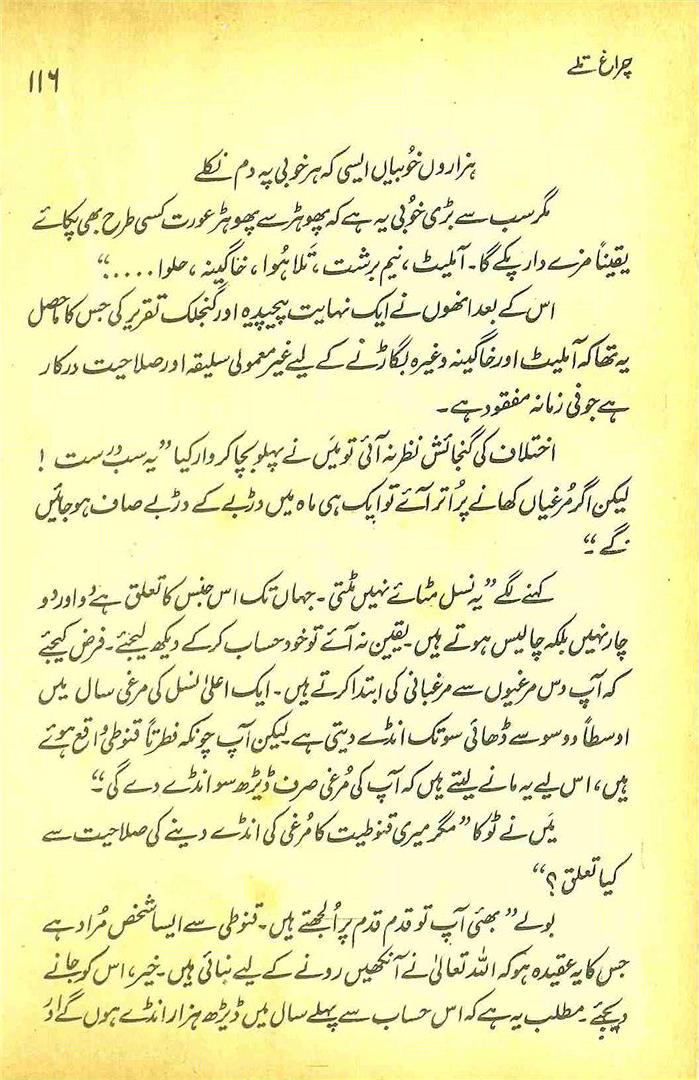 چراغ تلے
۱۱۶
ہزاروں خُوبیاں ایسی کہ ہر خوبی پہ دم نکلے
مگر سب سے بڑی خُوبی یہ ہے کہ پھوہڑ سے پھوہڑ عورت کسی طرح بھی پکائے
یقیناً مزے دار پکے گا۔ آملیٹ، نیم برشت، تَلا ہُوا، خاگینہ، حلوا ....“
اس کے بعد انھوں نے ایک نہایت پیچیدہ اور گنجلک تقریر کی جس کا ماحصل
یہ تھا کہ آملیٹ اور خاگینہ وغیرہ بگاڑنے کے لیے غیر معمولی سلیقہ اور صلاحیت درکار
ہے جو فی زمانہ مفقود ہے۔
اختلاف کی گنجائش نظر نہ آئی تو مَیں نے پہلو بچا کر وار کیا ”یہ سب دُرست !
لیکن اگر مُرغیاں کھانے پر اُتر آئے تو ایک ہی ماہ میں دڑبے کے دڑبے صاف ہو جائیں
گے۔“
کہنے لگے ”یہ نسل مٹائے نہیں مٹتی۔ جہاں تک اس جنس کا تعلق ہے دُو اور دو
چار نہیں بلکہ چالیس ہوتے ہیں۔ یقین نہ آئے تو خود حساب کر کے دیکھ لیجئے۔ فرض کیجئے
کہ آپ دس مرغیوں سے مرغبانی کی ابتدا کرتے ہیں۔ ایک اعلیٰ نسل کی مرغی سال میں
اوسطاً دو سو سے ڈھائی سو تک انڈے دیتی ہے۔ لیکن آپ چونکہ فطرتاً قنوطی واقع ہوئے
ہیں، اس لیے یہ مانے لیتے ہیں کہ آپ کی مُرغی صرف ڈیڑھ سو انڈے دے گی۔“
مَیں نے ٹوکا ”مگر میری قنوطیت کا مُرغی کی انڈے دینے کی صلاحیت سے
کیا تعلق ؟“
بولے ”بھئی آپ تو قدم قدم پر اُلجھتے ہیں۔ قنوطی سے ایسا شخص مُراد ہے
جس کا یہ عقیدہ ہو کہ اللہ تعالیٰ نے آنکھیں رونے کے لیے بنائی ہیں۔ خیر، اس کو جانے
دیجئے۔ مطلب یہ ہے کہ اس حساب سے پہلے سال میں ڈیڑھ ہزار انڈے ہوں گے اور